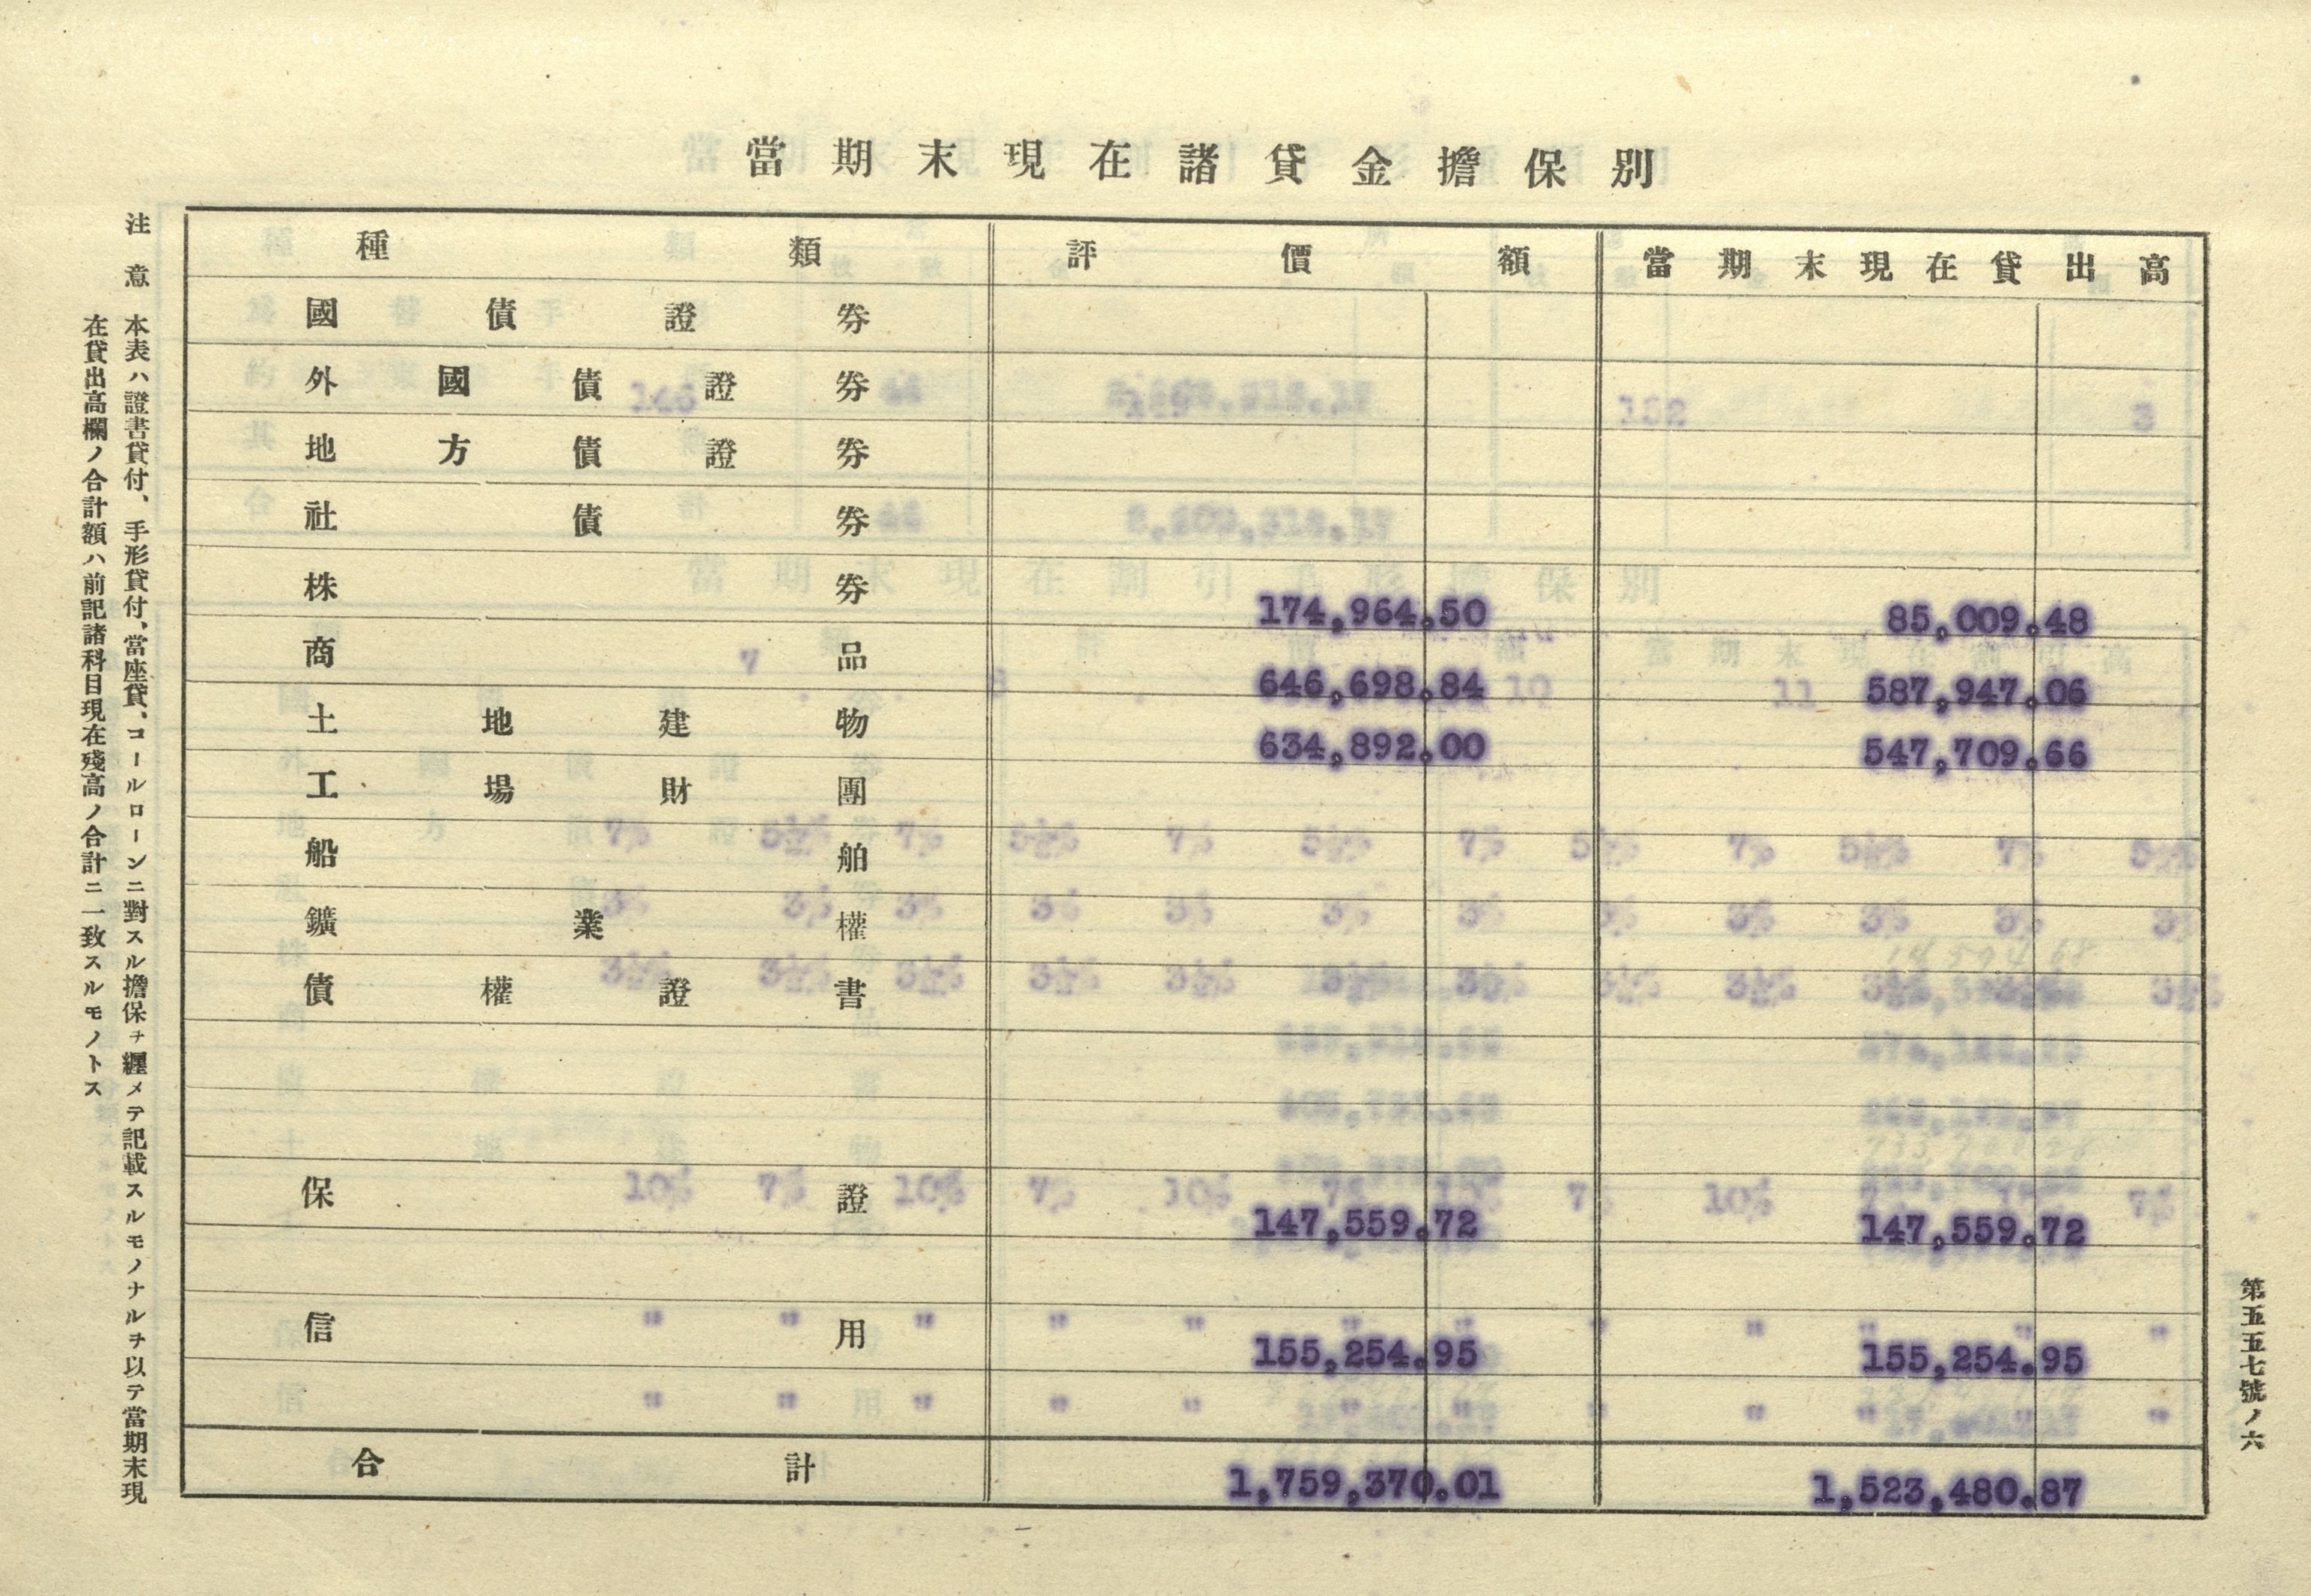 當期末現在諸貸金擔保別
種類 評價額 當期末現在貸出高
國債證券
外國債證券
地方債證券
社債券
株券 174,964.50 85,009.48
商品 646,698.84 587,947.06
土地建物 634,892.00 547,709.66
工場財團
船舶
鑛業權
債權證書
保證 147,559.72 147,559.72
信用 155,254.95 155,254.95
合計 1,759,370.01 1,523,480.87
第五五七號ノ六
注意 本表ハ證書貸付、手形貸付、當座貸、コールローンニ對スル擔保ヲ纒メテ記載スルモノナルヲ以テ當期末現
在貸出高欄ノ合計額ハ前記諸科目現在殘高ノ合計ニ一致スルモノトス